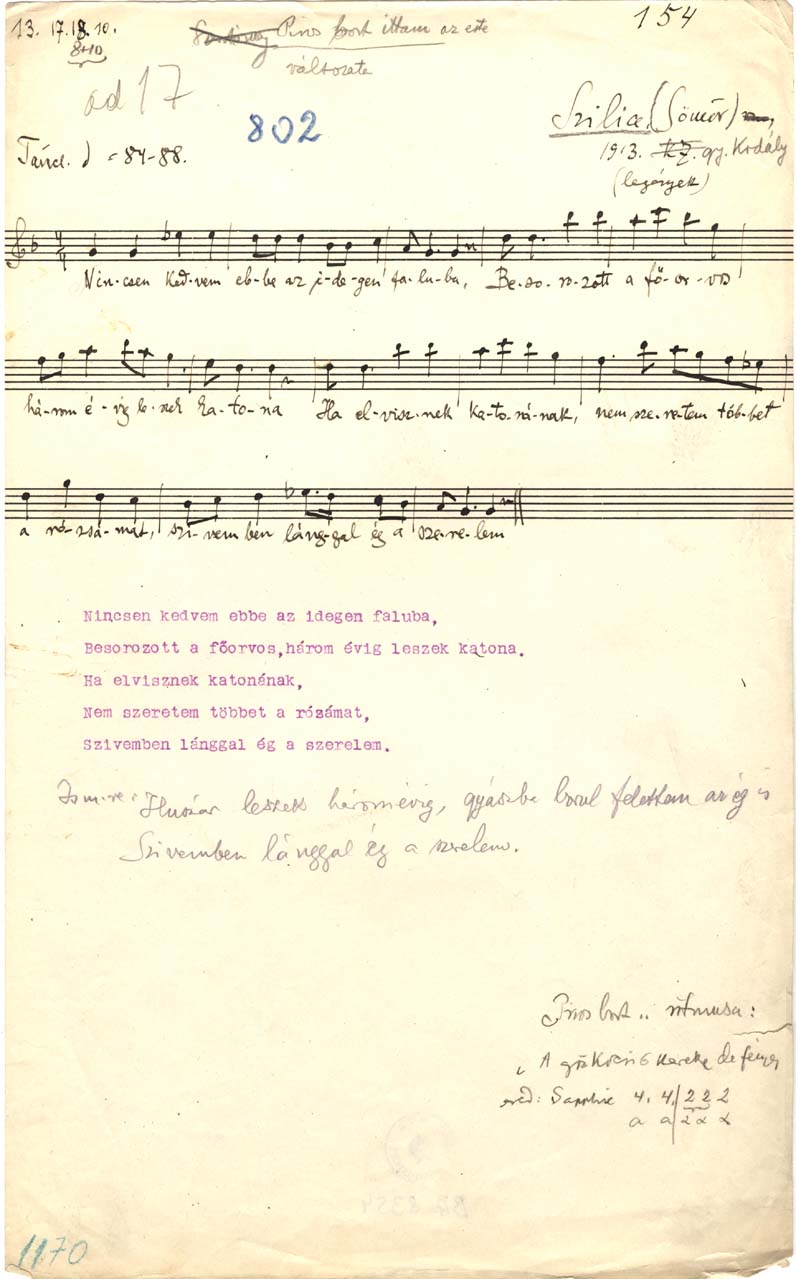 13. 17. 18. 10.
8+10
Piros bort ittam az este
változata
154
ad 17
802
Szilice (Gömör)
1913. gy. Kodály
(legények)
Táncl. = 84-88.
Nin-csen ked-vem eb-be az i-de-gen fa-lu-ba, Be-so-ro-zott a fő-or-vos
há-rom é-vig le-szek ka-to-na Ha el-visz-nek ka-to-ná-nak, nem sze-re-tem töb-bet
a ró-zsá-mat, szi-vem-ben láng-gal ég a sze-re-lem
Nincsen kedvem ebbe az idegen faluba,
Besorozott a főorvos,három évig leszek katona.
Ha elvisznek katonának,
Nem szeretem többet a rózámat,
Szivemben lánggal ég a szerelem.
Ism-re: Huszár leszek háromévig, gyászba borul felettem az ég is
Szivemben lánggal ég a szerelem.
Piros bort .. ritmusa:
„A gőzkocsi kereke de fényes
ered: 4. 4. 2 2 2
a a 2
1170